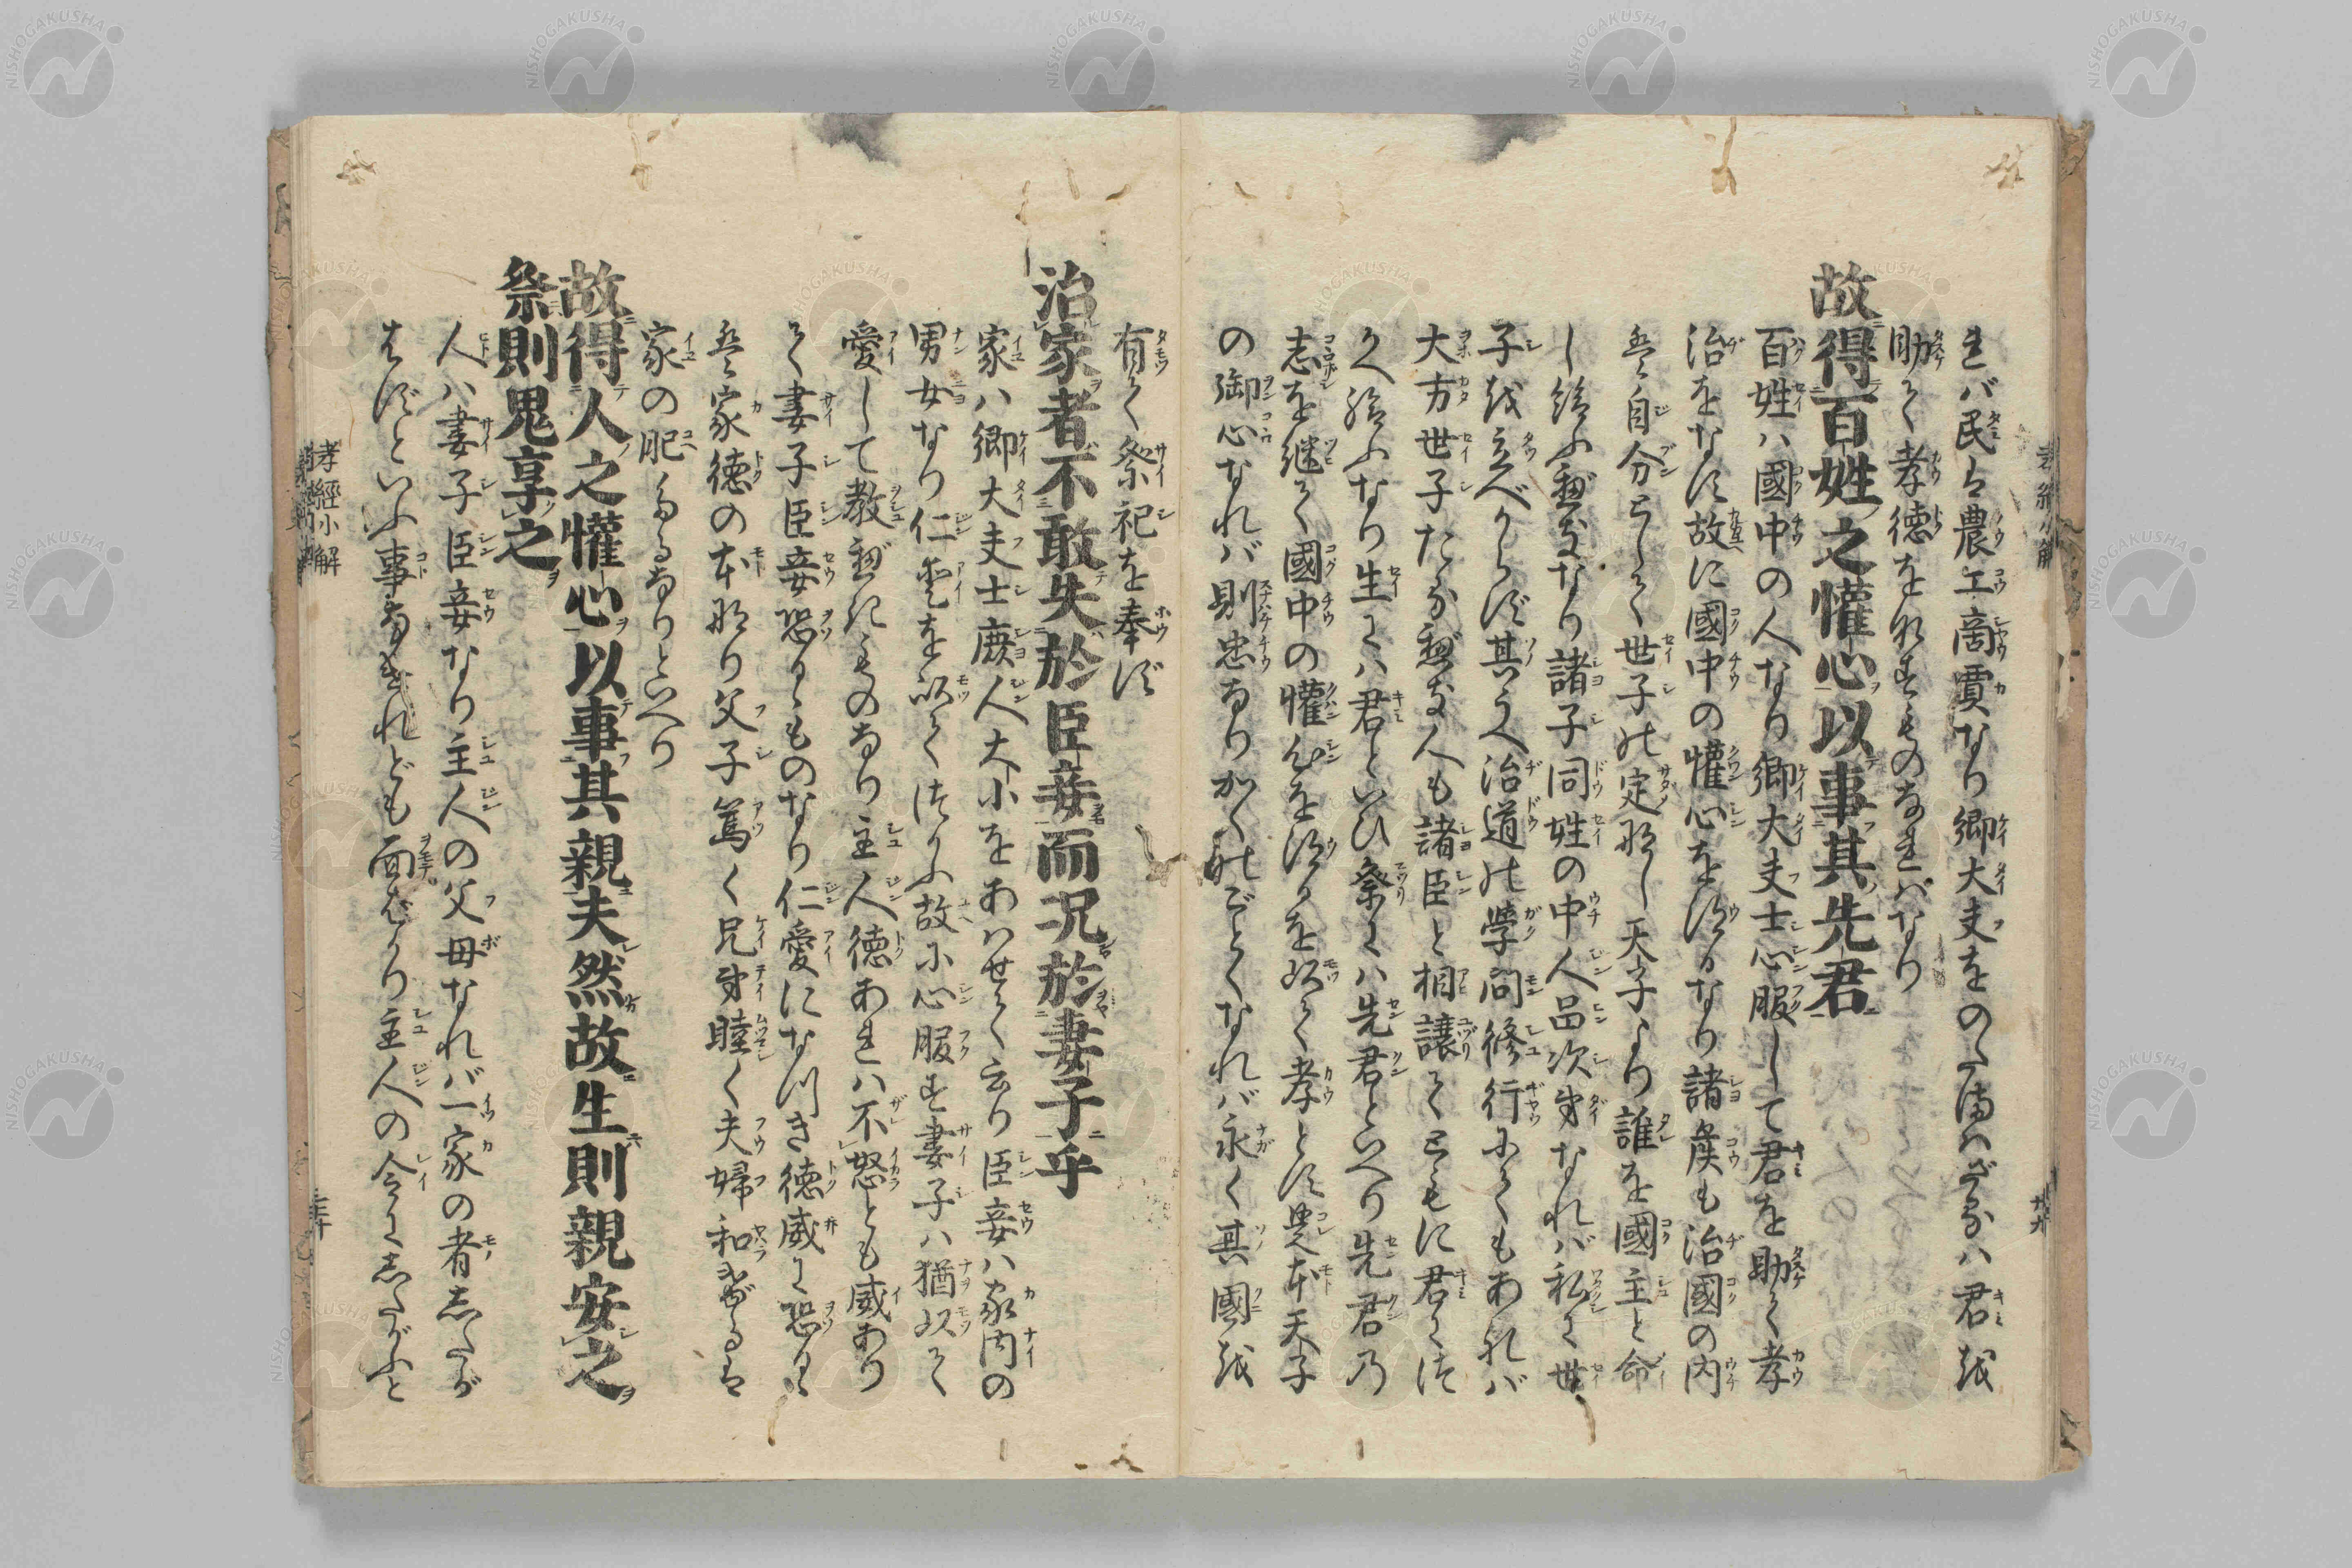 れバ民は農工商賈なり卿大夫をのたまはざるハ君を
助て孝徳をなすものなれバなり
故得百姓之懽心以事其先君
百姓ハ國中の人なり卿大夫士心服して君を助て孝
治をなす故に國中の懽心を得るなり諸侯も治國の内
自分として世子の定なし天子より誰を國主と命
し給ふ義なり諸子同姓の中人品次第なれバ私に世
子を立べからず其うへ治道の學問修行にてもあれバ
大方世子たる人も諸臣と相譲てともに君につ
かへ給ふなり生にハ君といひ祭にハ先君といへり先君乃
志を継て國中の懽心を得るを以て孝とす是本天子
の御心なれバ則忠なりかくのごとくなれバ永く其國を
有て祭祀を奉ず
治家者不敢失於臣妾而況於妻子乎
家ハ卿大夫士庶人大小をあハせて云り臣妾ハ家内の
男女なり仁愛を以てつかふ故に心服す妻子ハ猶以て
愛して教べきものなり主人徳あれハ不怒とも威あり
て妻子臣妾恐るゝものなり仁愛になつき徳威に恐るゝ
家徳の本なり父子篤く兄弟睦く夫婦和するは
家の肥たるなりといへり
故得人之懽心以事其親夫然故生則親安之
祭則鬼享之
人ハ妻子臣妾なり主人の父母なれバ一家の者したが
はずといふ事なけれども面ばかり主人の令にしたがふと
孝經小解